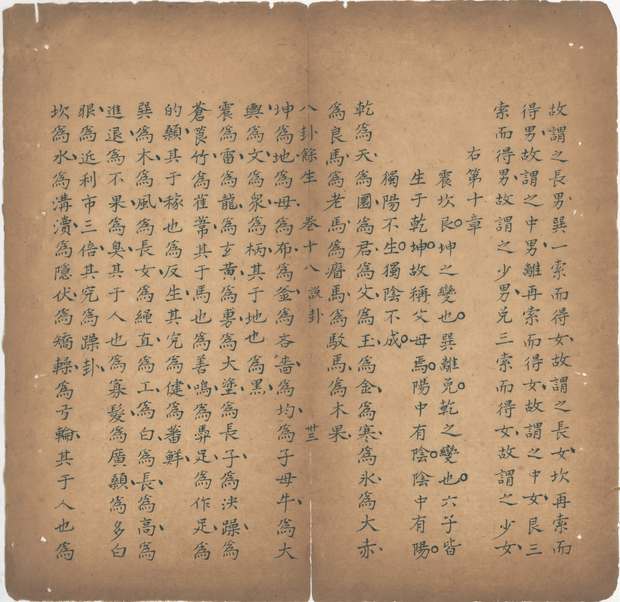 故謂之長男巽一索而得女故謂之長女坎再索而
得男故謂之中男離再索而得女故謂之中女艮三
索而得男故謂之少男兌三索而得女故謂之少女
右第十章
震坎艮坤之變也巽離兌乾之變也六子皆
生于乾坤故稱父母焉陽中有陰陰中有陽
獨陽不生獨陰不成
乾為天為圜為君為父為玉為金為寒為氷為大赤
為良馬為老馬為瘠馬為駁馬為木果
八卦餘生 卷十八說卦 卅三
坤為地為母為布為釜為吝嗇為均為子母牛為大
輿為文為衆為柄其于地也為黑
震為雷為龍為玄黃為旉為大塗為長子為決躁為
蒼筤竹為萑葦其于馬也為善鳴為馵足為作足為
的顙其于稼也為反生其究為健為蕃鮮
巽為木為風為長女為繩直為工為白為長為高為
進退為不果為臭其于人也為寡髮為廣顙為多白
眼為近利市三倍其究為躁卦
坎為水為溝瀆為隱伏為矯輮為弓輪其于人也為